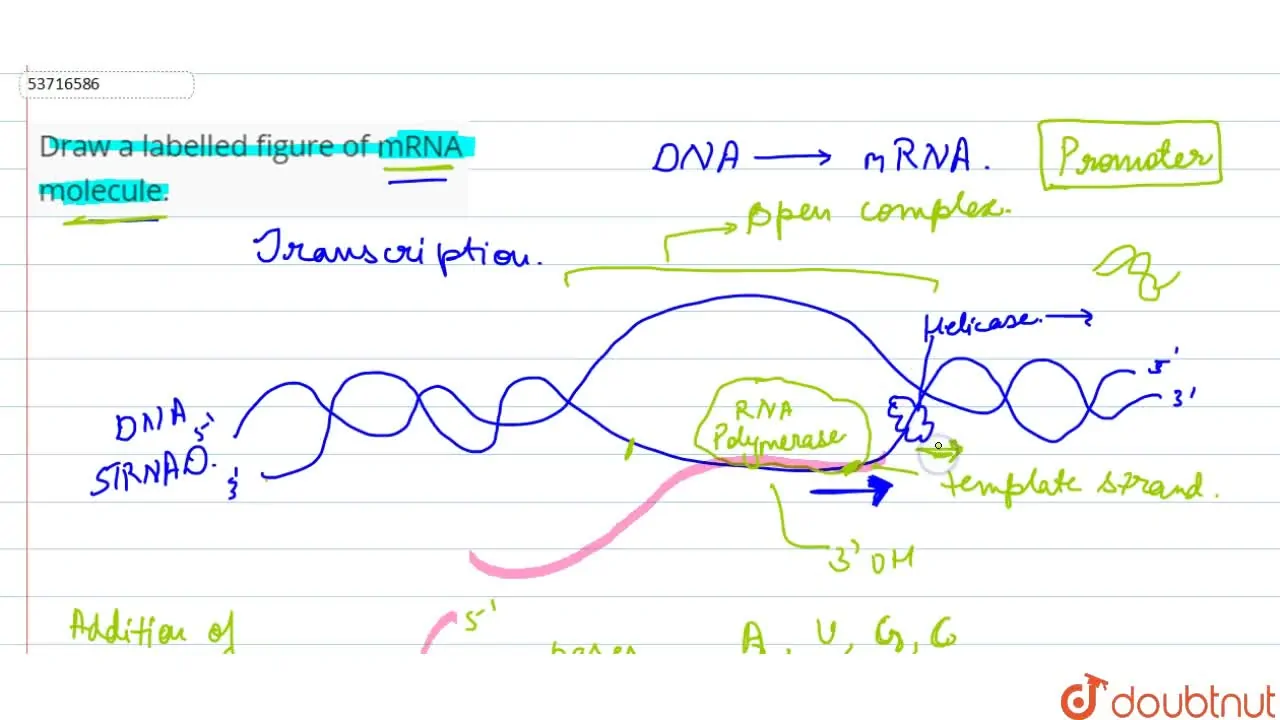 53716586
Draw a labelled figure of mRNA
molecule.
DNA → mRNA.
Promoter
Open complex.
Transcription.
Helicase. →
5'
3'
DNA 5'
STRNAD.
3'
RNA
Polymerase
Template strand.
3' OH
Addition of
5'
bases
A, U, G, C
doubtnut